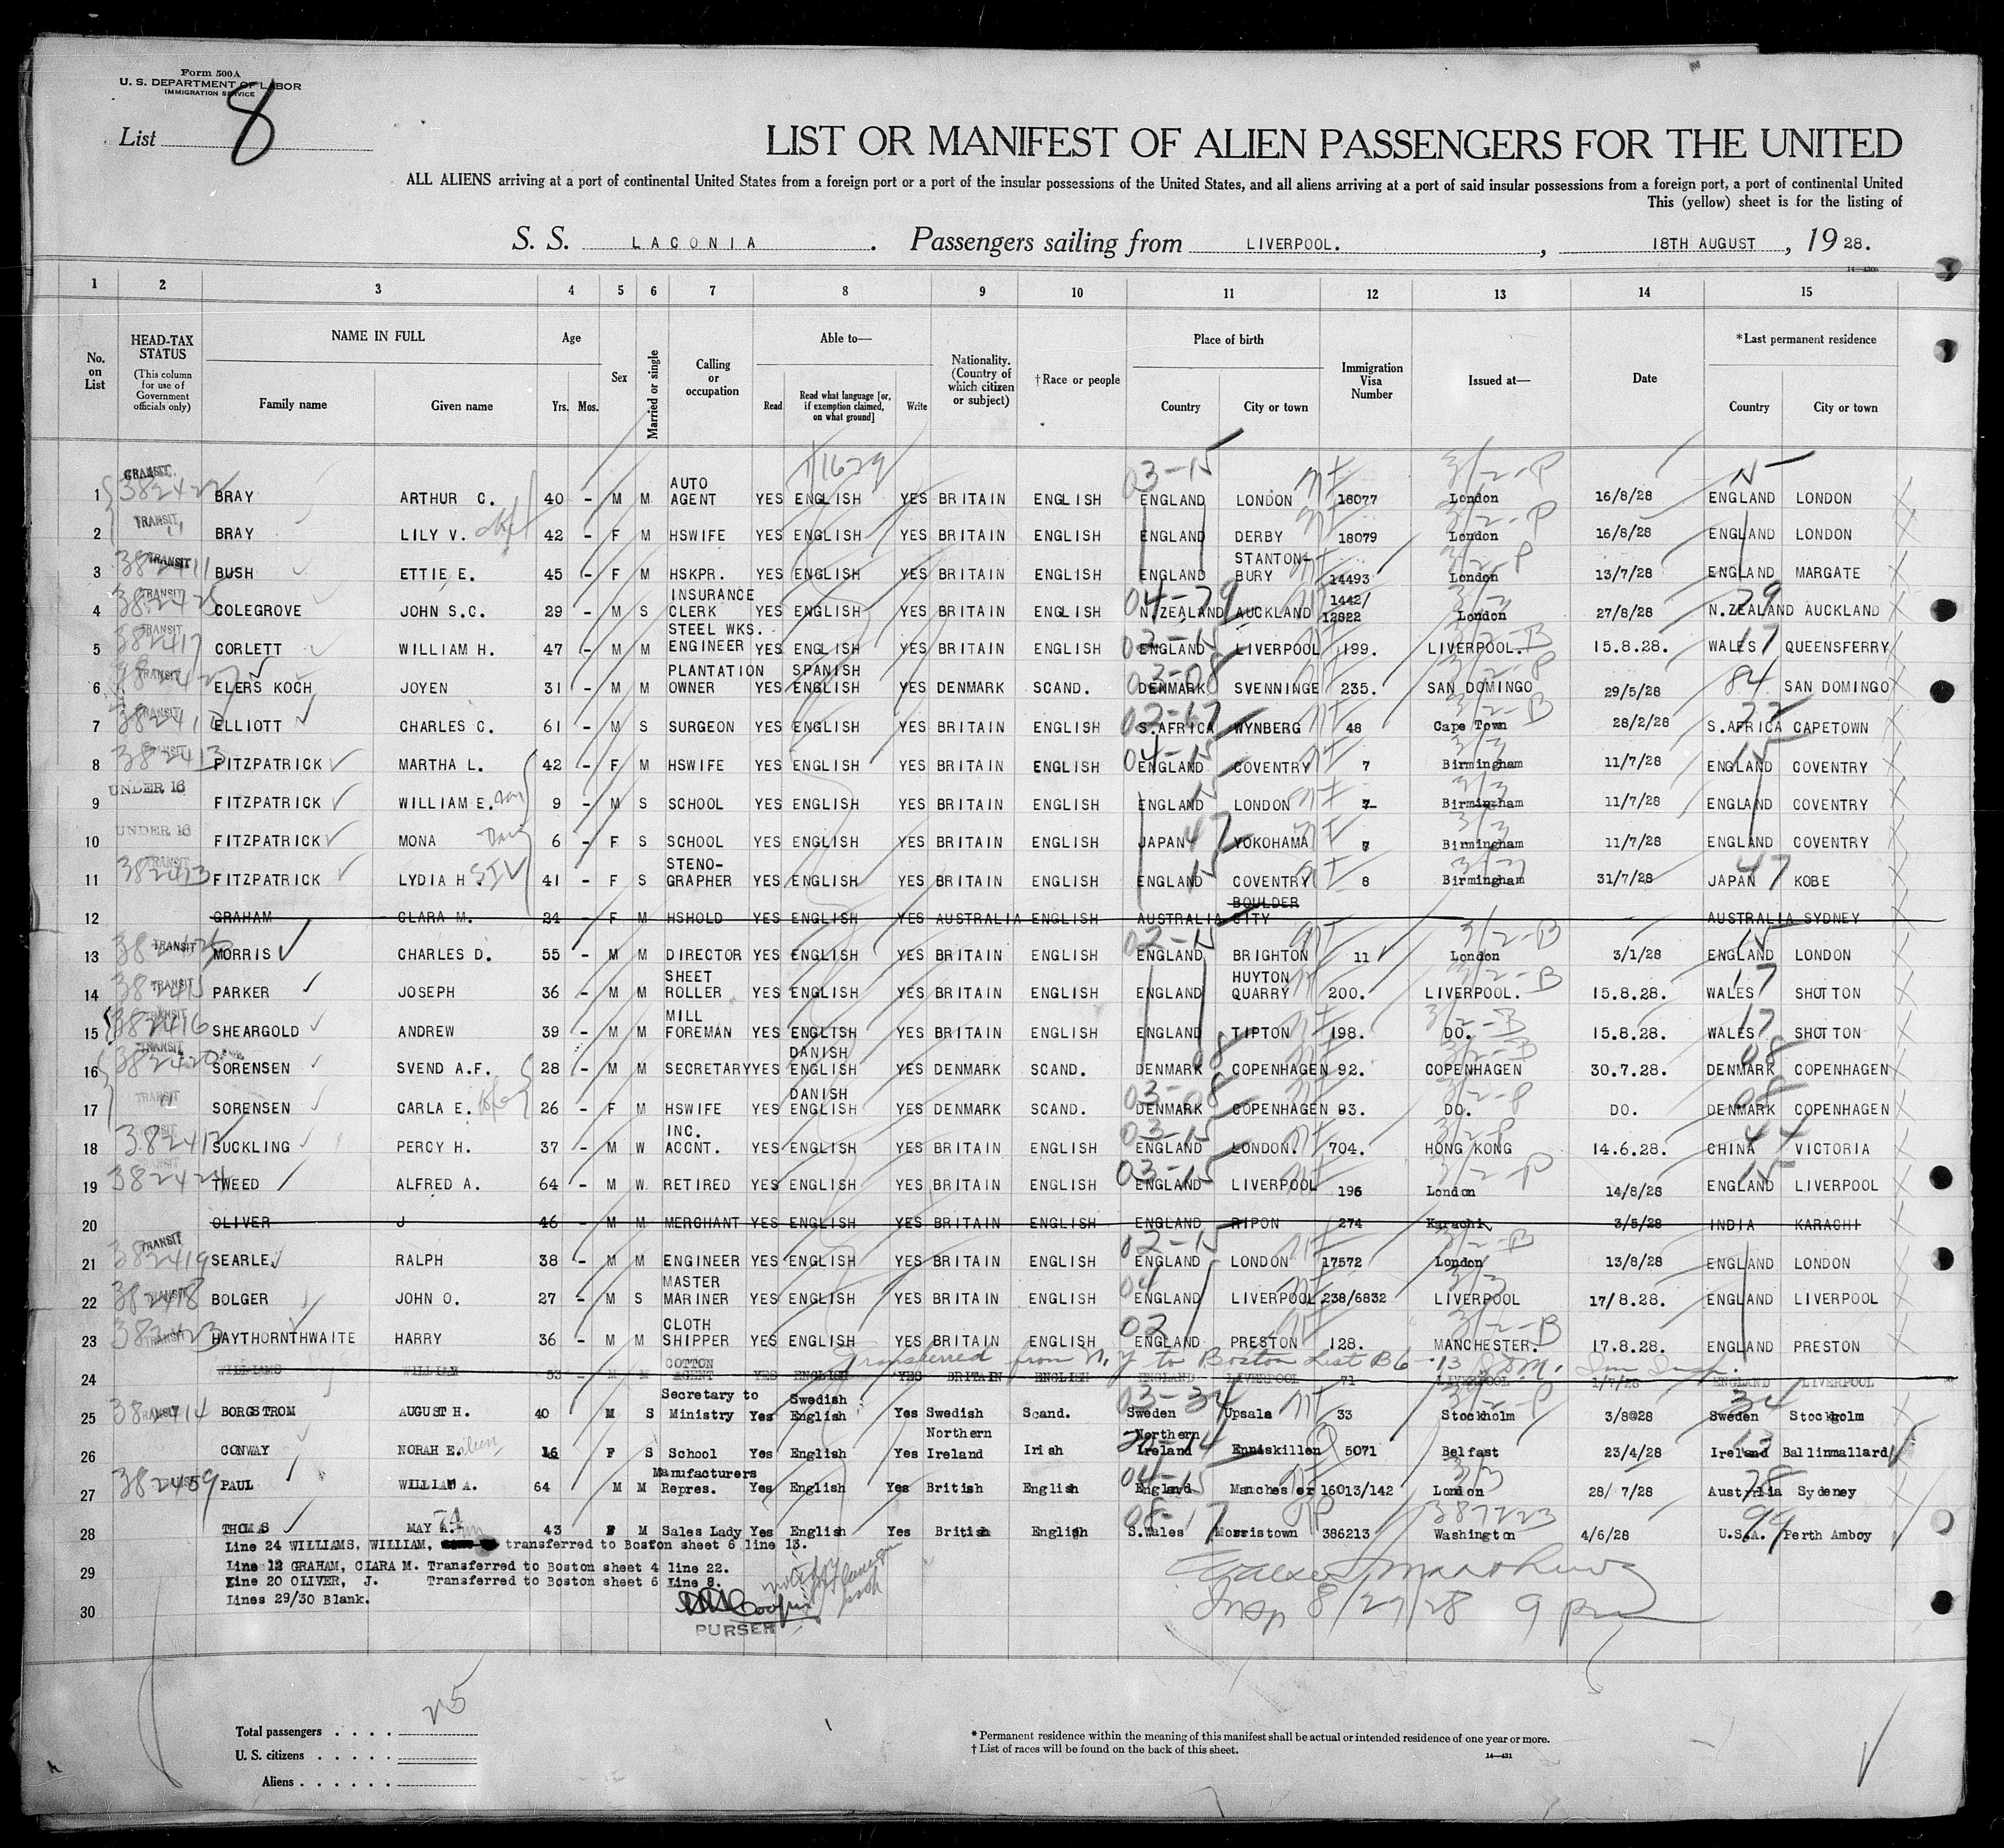 Form 500A
U. S. DEPARTMENT OF LABOR
IMMIGRATION SERVICE
List 8
LIST OR MANIFEST OF ALIEN PASSENGERS FOR THE UNITED
ALL ALIENS arriving at a port of continental United States from a foreign port or a port of the insular possessions of the United States, and all aliens arriving at a port of said insular possessions from a foreign port, a port of continental United
This (yellow) sheet is for the listing of
S. S. LACONIA. Passengers sailing from LIVERPOOL., 18TH AUGUST, 1928.
1 2 3 4 5 6 7 8 9 10 11 12 13 14 15
No. on List HEAD-TAX STATUS (This column for use of Government officials only) NAME IN FULL Family name Given name Age Yrs. Mos. Sex Married or single Calling or occupation Able to— Read Read what language [or, if exemption claimed, on what ground] Write Nationality. (Country of which citizen or subject) †Race or people Place of birth Country City or town Immigration Visa Number Issued at— Date *Last permanent residence Country City or town
1 TRANSIT 382422 BRAY ARTHUR C. 40 - M M AUTO AGENT YES ENGLISH YES BRITAIN ENGLISH ENGLAND LONDON 18077 London 16/8/28 ENGLAND LONDON
2 TRANSIT BRAY LILY V. 42 - F M HSWIFE YES ENGLISH YES BRITAIN ENGLISH ENGLAND DERBY 18079 London 16/8/28 ENGLAND LONDON
3 TRANSIT 382411 BUSH ETTIE E. 45 - F M HSKPR. YES ENGLISH YES BRITAIN ENGLISH ENGLAND STANTON-BURY 14493 London 13/7/28 ENGLAND MARGATE
4 TRANSIT 382425 COLEGROVE JOHN S.C. 29 - M S INSURANCE CLERK YES ENGLISH YES BRITAIN ENGLISH N.ZEALAND AUCKLAND 1442/12822 London 27/8/28 N.ZEALAND AUCKLAND
5 TRANSIT 382417 CORLETT WILLIAM H. 47 - M M STEEL WKS. ENGINEER YES ENGLISH YES BRITAIN ENGLISH ENGLAND LIVERPOOL 199. LIVERPOOL. 15.8.28. WALES QUEENSFERRY
6 TRANSIT ELERS KOCH JOYEN 31 - M M PLANTATION OWNER YES SPANISH ENGLISH YES DENMARK SCAND. DENMARK SVENNINGE 235. SAN DOMINGO 29/5/28 SAN DOMINGO
7 TRANSIT ELLIOTT CHARLES C. 61 - M S SURGEON YES ENGLISH YES BRITAIN ENGLISH S.AFRICA WYNBERG 48 Cape Town 28/2/28 S.AFRICA CAPETOWN
8 382413 FITZPATRICK MARTHA L. 42 - F M HSWIFE YES ENGLISH YES BRITAIN ENGLISH ENGLAND COVENTRY 7 Birmingham 11/7/28 ENGLAND COVENTRY
9 UNDER 16 FITZPATRICK WILLIAM E. 9 - M S SCHOOL YES ENGLISH YES BRITAIN ENGLISH ENGLAND LONDON 7 Birmingham 11/7/28 ENGLAND COVENTRY
10 UNDER 16 FITZPATRICK MONA 6 - F S SCHOOL YES ENGLISH YES BRITAIN ENGLISH JAPAN YOKOHAMA 7 Birmingham 11/7/28 ENGLAND COVENTRY
11 FITZPATRICK LYDIA H. 41 - F S STENO-GRAPHER YES ENGLISH YES BRITAIN ENGLISH ENGLAND COVENTRY 8 Birmingham 31/7/28 JAPAN KOBE
12 GRAHAM CLARA M. 24 - F M HSHOLD YES ENGLISH YES AUSTRALIA ENGLISH AUSTRALIA BOULDER CITY AUSTRALIA SYDNEY
13 TRANSIT MORRIS CHARLES D. 55 - M M DIRECTOR YES ENGLISH YES BRITAIN ENGLISH ENGLAND BRIGHTON 11 London 3/1/28 ENGLAND LONDON
14 TRANSIT 382415 PARKER JOSEPH 36 - M M SHEET ROLLER YES ENGLISH YES BRITAIN ENGLISH ENGLAND HUYTON QUARRY 200. LIVERPOOL. 15.8.28. WALES SHOTTON
15 TRANSIT 382416 SHEARGOLD ANDREW 39 - M M MILL FOREMAN YES ENGLISH YES BRITAIN ENGLISH ENGLAND TIPTON 198. DO. 15.8.28. WALES SHOTTON
16 TRANSIT 382420 SORENSEN SVEND A.F. 28 - M M SECRETARY YES DANISH ENGLISH YES DENMARK SCAND. DENMARK COPENHAGEN 92. COPENHAGEN 30.7.28. DENMARK COPENHAGEN
17 TRANSIT SORENSEN CARLA E. 26 - F M HSWIFE YES DANISH ENGLISH YES DENMARK SCAND. DENMARK COPENHAGEN 93. DO. DO. DENMARK COPENHAGEN
18 382412 SUCKLING PERCY H. 37 - M W INC. ACCNT. YES ENGLISH YES BRITAIN ENGLISH ENGLAND LONDON. 704. HONG KONG 14.6.28. CHINA VICTORIA
19 382424 TWEED ALFRED A. 64 - M W. RETIRED YES ENGLISH YES BRITAIN ENGLISH ENGLAND LIVERPOOL 196 London 14/8/28 ENGLAND LIVERPOOL
20 OLIVER J 46 - M M MERCHANT YES ENGLISH YES BRITAIN ENGLISH ENGLAND RIPON 274 Karachi 3/5/28 INDIA KARACHI
21 TRANSIT 382419 SEARLE RALPH 38 - M M ENGINEER YES ENGLISH YES BRITAIN ENGLISH ENGLAND LONDON 17572 London 13/8/28 ENGLAND LONDON
22 TRANSIT 382418 BOLGER JOHN O. 27 - M S MASTER MARINER YES ENGLISH YES BRITAIN ENGLISH ENGLAND LIVERPOOL 238/6832 LIVERPOOL 17/8.28. ENGLAND LIVERPOOL
23 TRANSIT 382423 HAYTHORNTHWAITE HARRY 36 - M M CLOTH SHIPPER YES ENGLISH YES BRITAIN ENGLISH ENGLAND PRESTON 128. MANCHESTER. 17.8.28. ENGLAND PRESTON
Transferred from N.Y to Boston List B6-13
24 WILLIAMS WILLIAM 53 - M M COTTON AGENT YES ENGLISH YES BRITAIN ENGLISH ENGLAND LIVERPOOL 71 LIVERPOOL 1/7/28 ENGLAND LIVERPOOL
25 TRANSIT BORGSTROM AUGUST H. 40 M S Secretary to Ministry Yes Swedish English Yes Swedish Scand. Sweden Upsala 33 Stockholm 3/8@28 Sweden Stockholm
26 CONWAY NORAH E. 16 F S School Yes English Yes Northern Ireland Irish Northern Ireland Enniskillen 5071 Belfast 23/4/28 Ireland Ballinmallard
27 382459 PAUL WILLIAM A. 64 M M Manufacturers Repres. Yes English Yes British English England Manchester 16013/142 London 28/7/28 Australia Sydeney
28 THOMAS MAY A. 43 F M Sales Lady Yes English Yes British English S.Wales Morristown 386213 387223 Washington 4/6/28 U.S.A. Perth Amboy
Line 24 WILLIAMS, WILLIAM, transferred to Boston sheet 6 line 13.
29 Line 12 GRAHAM, CLARA M. Transferred to Boston sheet 4 line 22.
Line 20 OLIVER, J. Transferred to Boston sheet 6 Line 8.
30 Lines 29/30 Blank.
PURSER
Insp 8/27/28 9 pm
Total passengers . . . . 25
U. S. citizens . . . . .
Aliens . . . . . .
* Permanent residence within the meaning of this manifest shall be actual or intended residence of one year or more.
† List of races will be found on the back of this sheet.
14—431